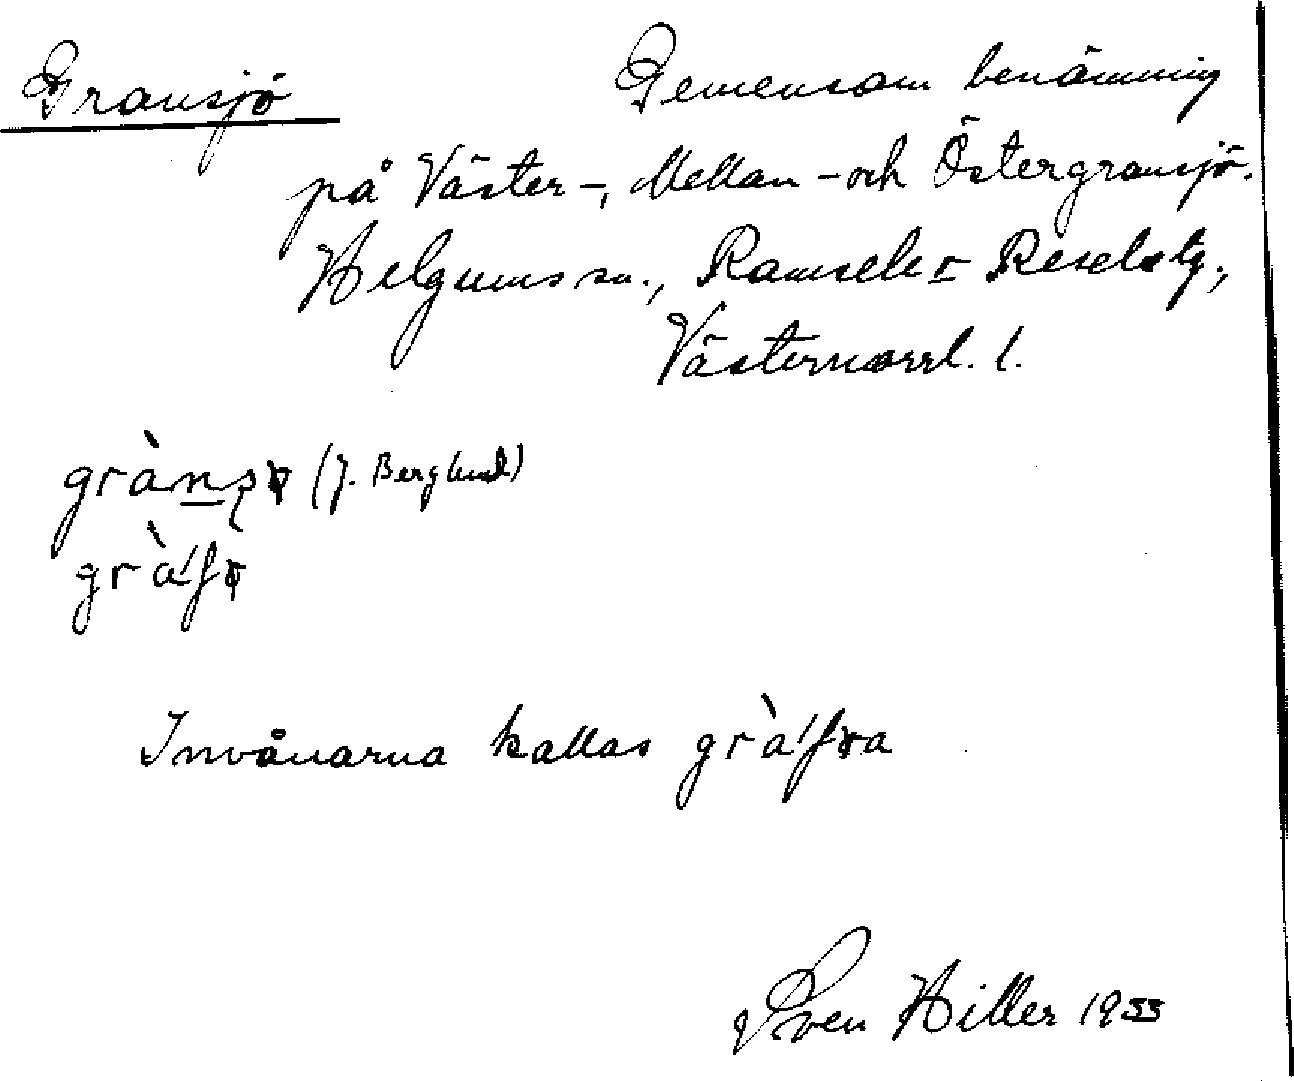 Gransjö Gemensam benämning
på Väster-, Mellan- och Östergransjö.
Helgums sn., Ramsele o Resele tg.,
Västernorrl. l.
(J. Berglund)
Invånarna kallas
Sven Hiller 1933